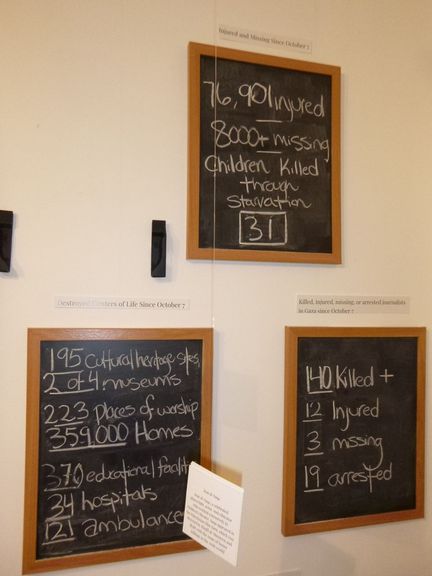 Injured and Missing Since October 7
76,901 injured
8000+ missing
Children Killed
through
Starvation
31
Destroyed Centers of Life Since October 7
195 cultural heritage sites,
2 of 4 museums
223 places of worship
359,000 Homes
370 educational facilit
34 hospitals
121 ambulance
Killed, injured, missing, or arrested journalists
in Gaza since October 7
140 Killed +
12 Injured
3 missing
19 arrested